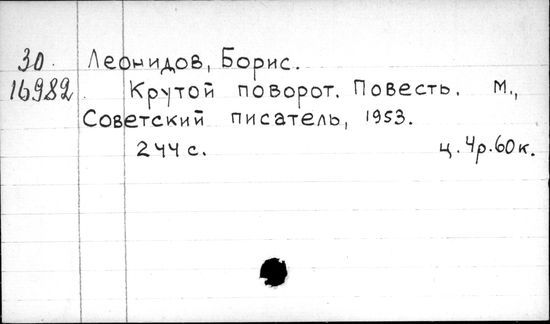 30 Леонидов, Борис.
16982 Крутой поворот. Повесть. М.,
Советский писатель, 1953.
244 с. ц. 4р. 60к.